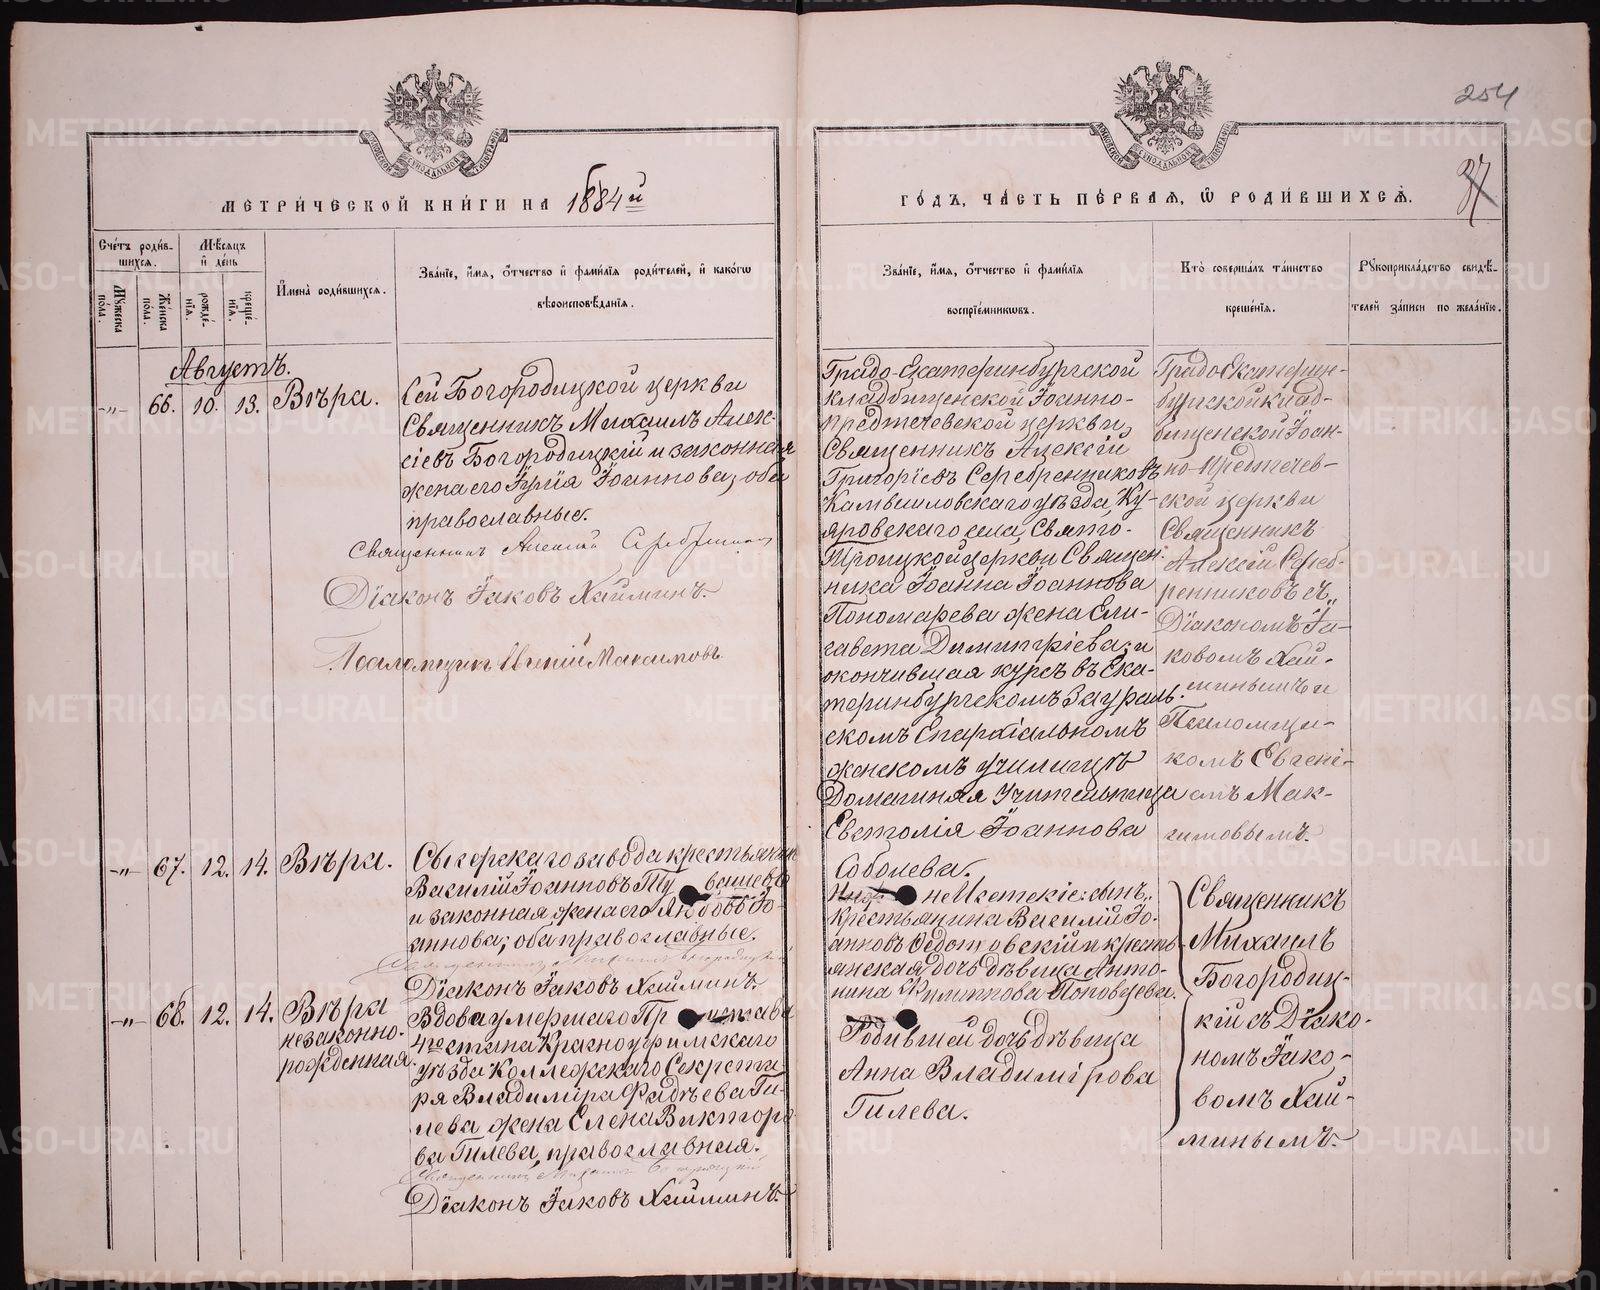 254
37
МЕТРИЧЕСКОЙ КНИГИ НА 1884й
ГОДЪ, ЧАСТЬ ПЕРВАЯ, Ѿ РОДИВШИХСЯ.
Счетъ родив-
шихся.
Мужеска пола.
Женска пола.
Мѣсяцъ и день
рожде-
нія.
креще-
нія.
Имена родившихся.
Званіе, имя, отчество и фамилія родителей, и какогѡ
вѣроисповѣданія.
Званіе, имя, отчество и фамилія
воспріемникѡвъ.
Кто совершалъ таинство
крещенія.
Рукоприкладство свидѣ-
телей записи по желанію.
Августъ.
-"- 66. 10. 13. Вѣра.
Сей Богородицкой церкви
Священникъ Михаилъ Алек-
сіевъ Богородицкій и законная
жена его Іулія Іоаннова, оба
православные.
Священникъ Алексій Серебренников
Діаконъ Іаковъ Хайминъ.
Псаломщикъ Евгеній Максимовъ.
Градо-Екатеринбургской
кладбищенской Іоанно-
предтечевской церкви,
Священникъ Алексій
Григоріевъ Серебренниковъ
Камышловскаго уѣзда, Ку-
яровскаго села, Свято-
Троицкой церкви Священ-
ника Іоанна Іоаннова
Пономарева жена Ели-
завета Димитріева; и
окончившая курсъ въ Ека-
теринбургскомъ Заураль-
скомъ Епархіальномъ
женскомъ училищѣ
Домашняя Учительница
Евстолія Іоаннова
Соболева.
Градо-Екатерин-
бургской клад-
бищенской Іоан-
но-Предтечев-
ской церкви
Священникъ
Алексій Сереб-
ренниковъ съ
Діакономъ Іа-
ковомъ Хай-
минымъ и
Псаломщи-
комъ Евгені-
емъ Мак-
симовымъ.
-"- 67. 12. 14. Вѣра.
Сысертскаго завода крестьянинъ
Василій Іоанновъ
и законная жена его Любовь Іо-
аннова; оба православные.
Священникъ Михаилъ Богородицкій
Діаконъ Іаковъ Хайминъ.
сынъ
крестьянина Василій Іо-
анновъ Федотовскій и кресть-
янская дочь дѣвица Анто-
нина Филиппова Поповцева.
Священникъ
Михаилъ
Богородиц-
кій съ Діако-
номъ Іако-
вомъ Хай-
минымъ.
-"- 68. 12. 14. Вѣра
незаконно-
рожденная.
Вдова умершаго Пристава
4го стана Красноуфимскаго
уѣзда Коллежскаго Секрета-
ря Владиміра Фадѣева Ги-
лева жена Елена Викторо-
ва Гилева, православная.
Священникъ Михаилъ Богородицкій
Діаконъ Іаковъ Хайминъ.
Родившей дочь дѣвица
Анна Владимірова
Гилева.